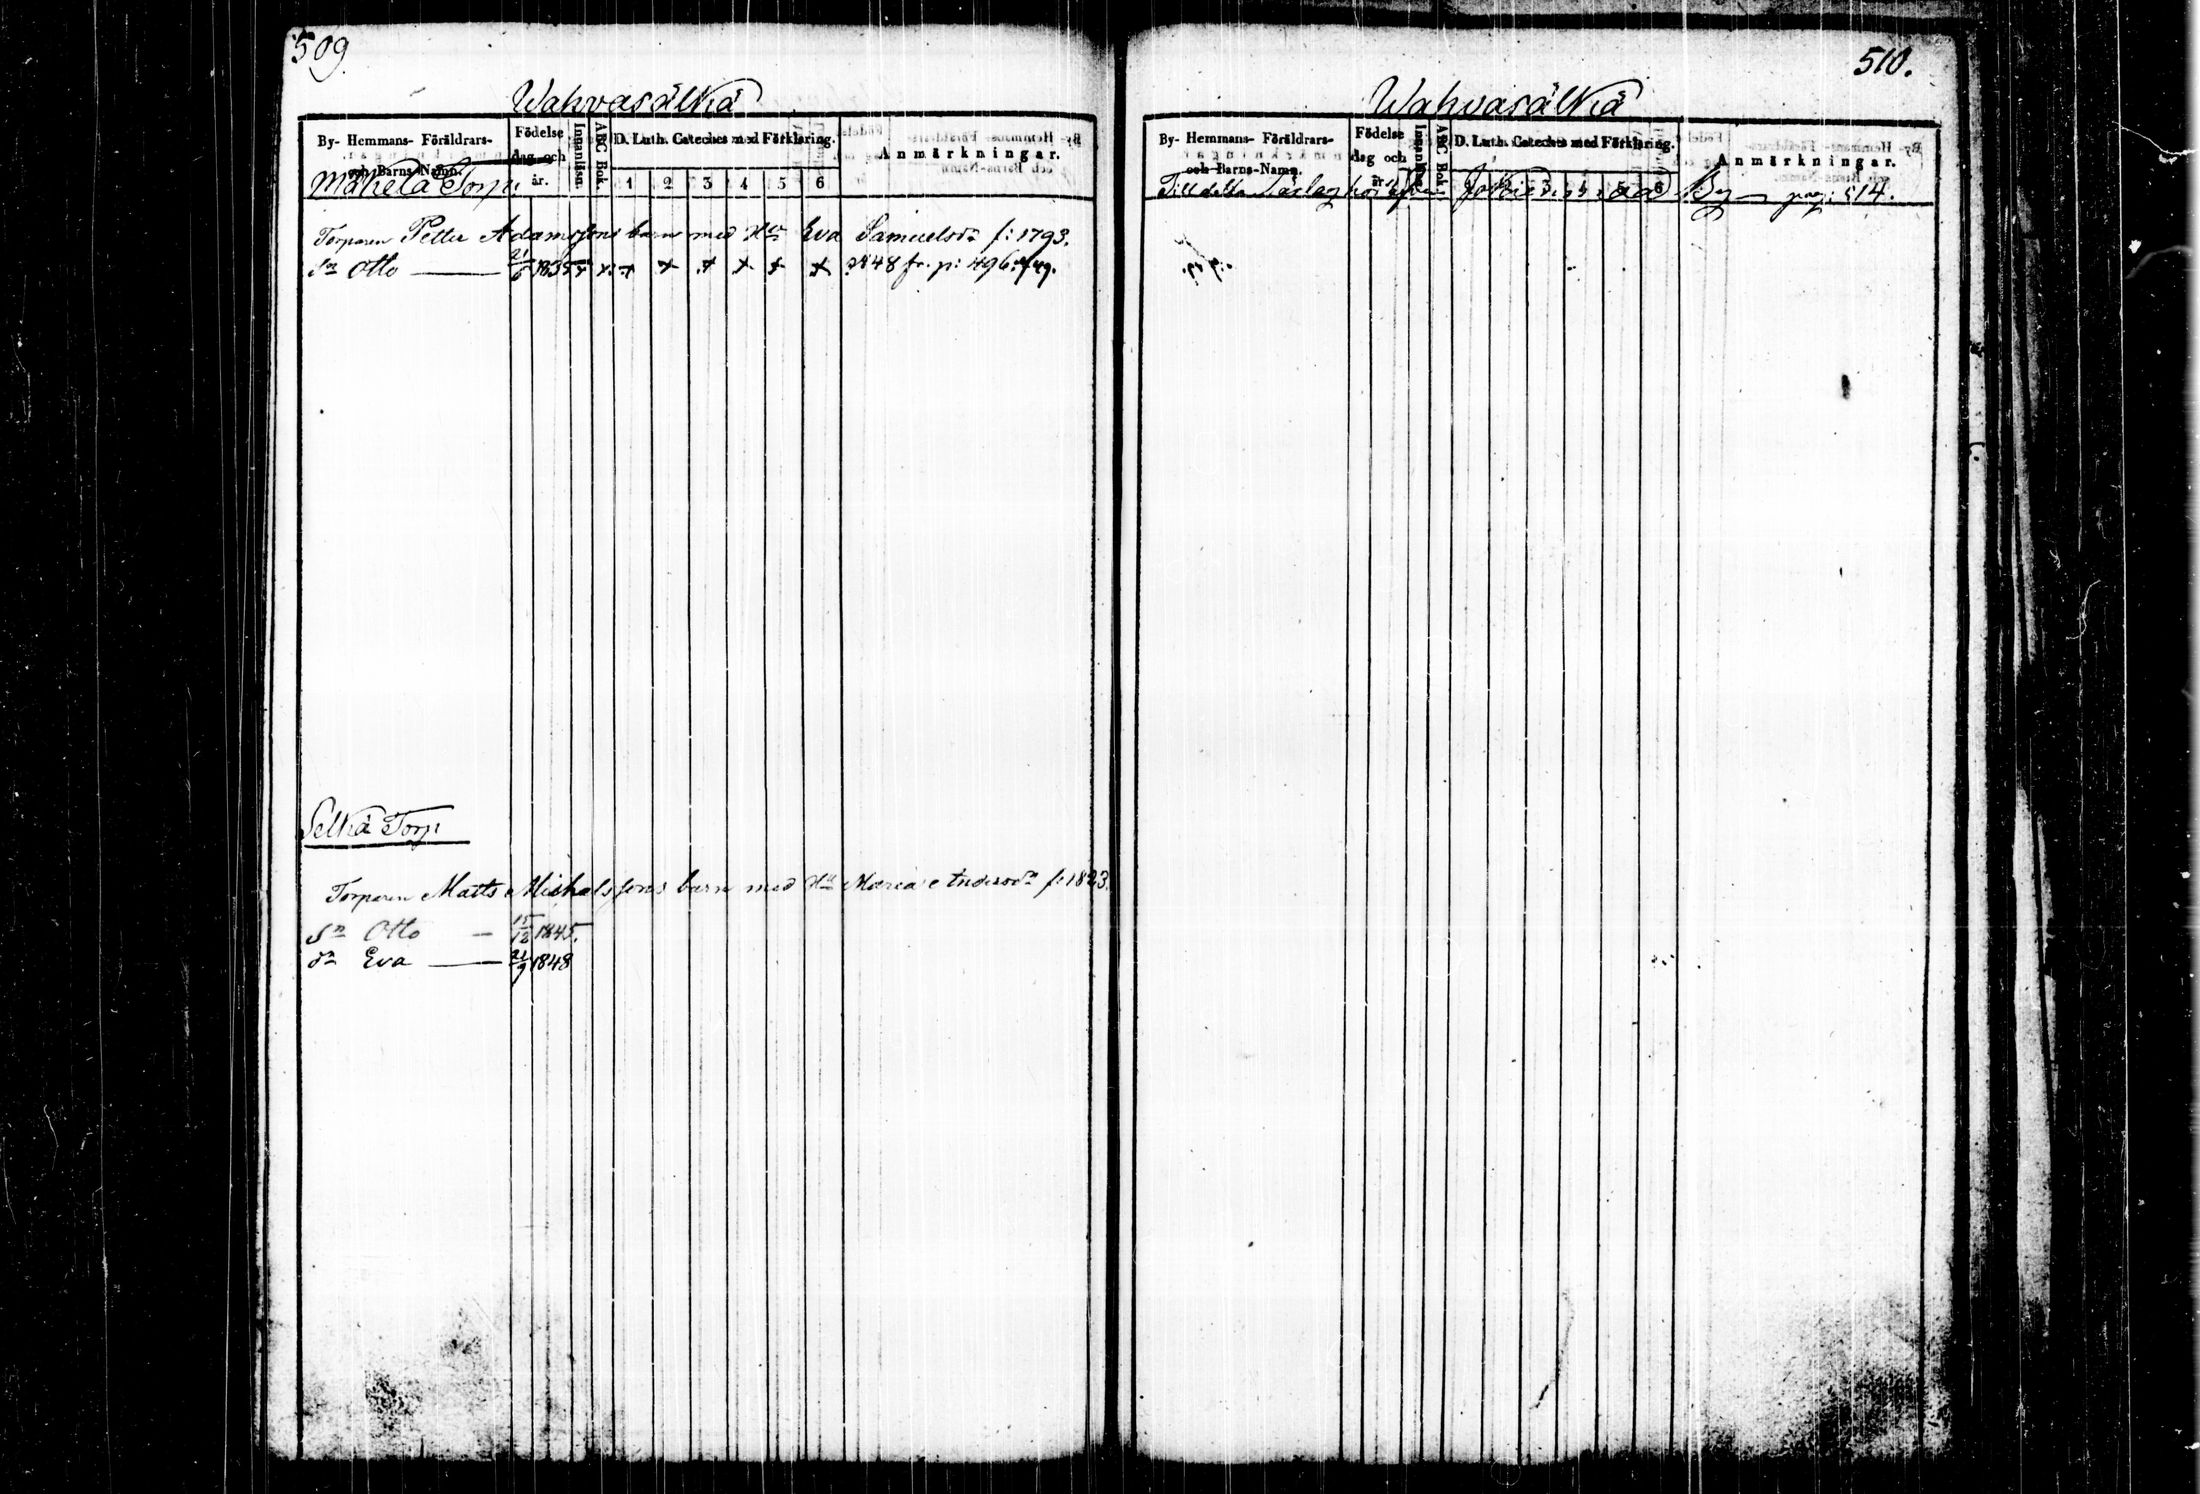 509
Wahvasälkiä
By- Hemmans- Föräldrars-
och Barns-Namn.
Födelse
dag och
år.
Innanläsn.
ABC Bok.
D. Luth. Cateches med Förklaring.
1 2 3 4 5 6
Anmärkningar.
Mäkelä Torp
Torparen Petter Adamssons barn med Hu Eva Samuelsdr f: 1793.
Sn Otto 21/6 1835 + x + + + + + + 48 fr. p: 496.
Selkä Torp
Torparen Matts Michelssons barn med Hu Maria Andersdr f: 1823.
Sn Otto — 15/12 1845.
dr Eva — 21/9 1848
510.
Wahvasälkiä
By- Hemmans- Föräldrars-
och Barns-Namn.
Födelse
dag och
år.
Innanläsn.
ABC Bok.
D. Luth. Cateches med Förklaring.
3 4 5 6
Anmärkningar.
Till detta By pag: 514.